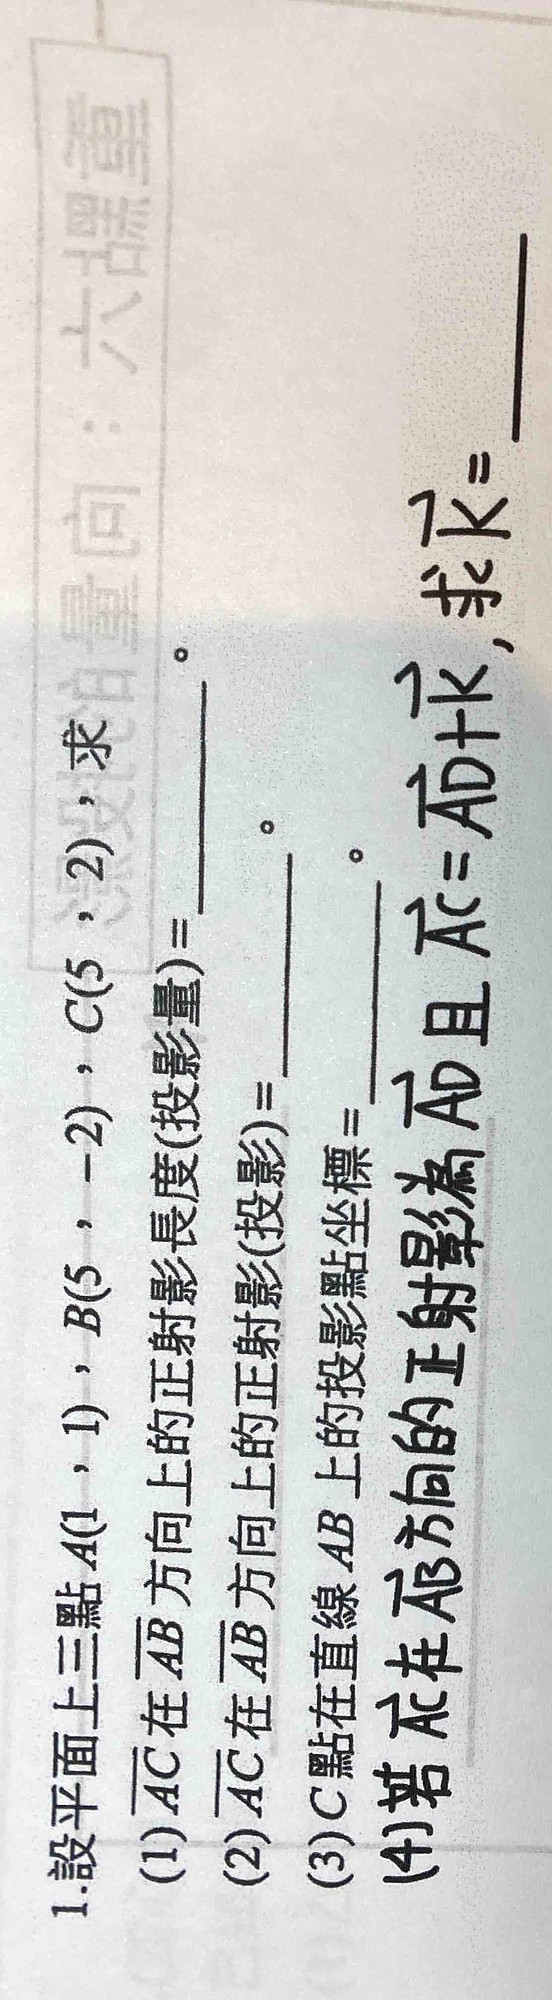 1.設平面上三點 A(1 , 1) , B(5 , −2) , C(5 , 2) , 求
(1) AC 在 AB 方向上的正射影長度(投影量)=______。
(2) AC 在 AB 方向上的正射影(投影)=______。
(3) C 點在直線 AB 上的投影點坐標=______。
(4) 若 AC 在 AB 方向的正射影為 AD 且 AC = AD + K , 求 K = ______
六點重